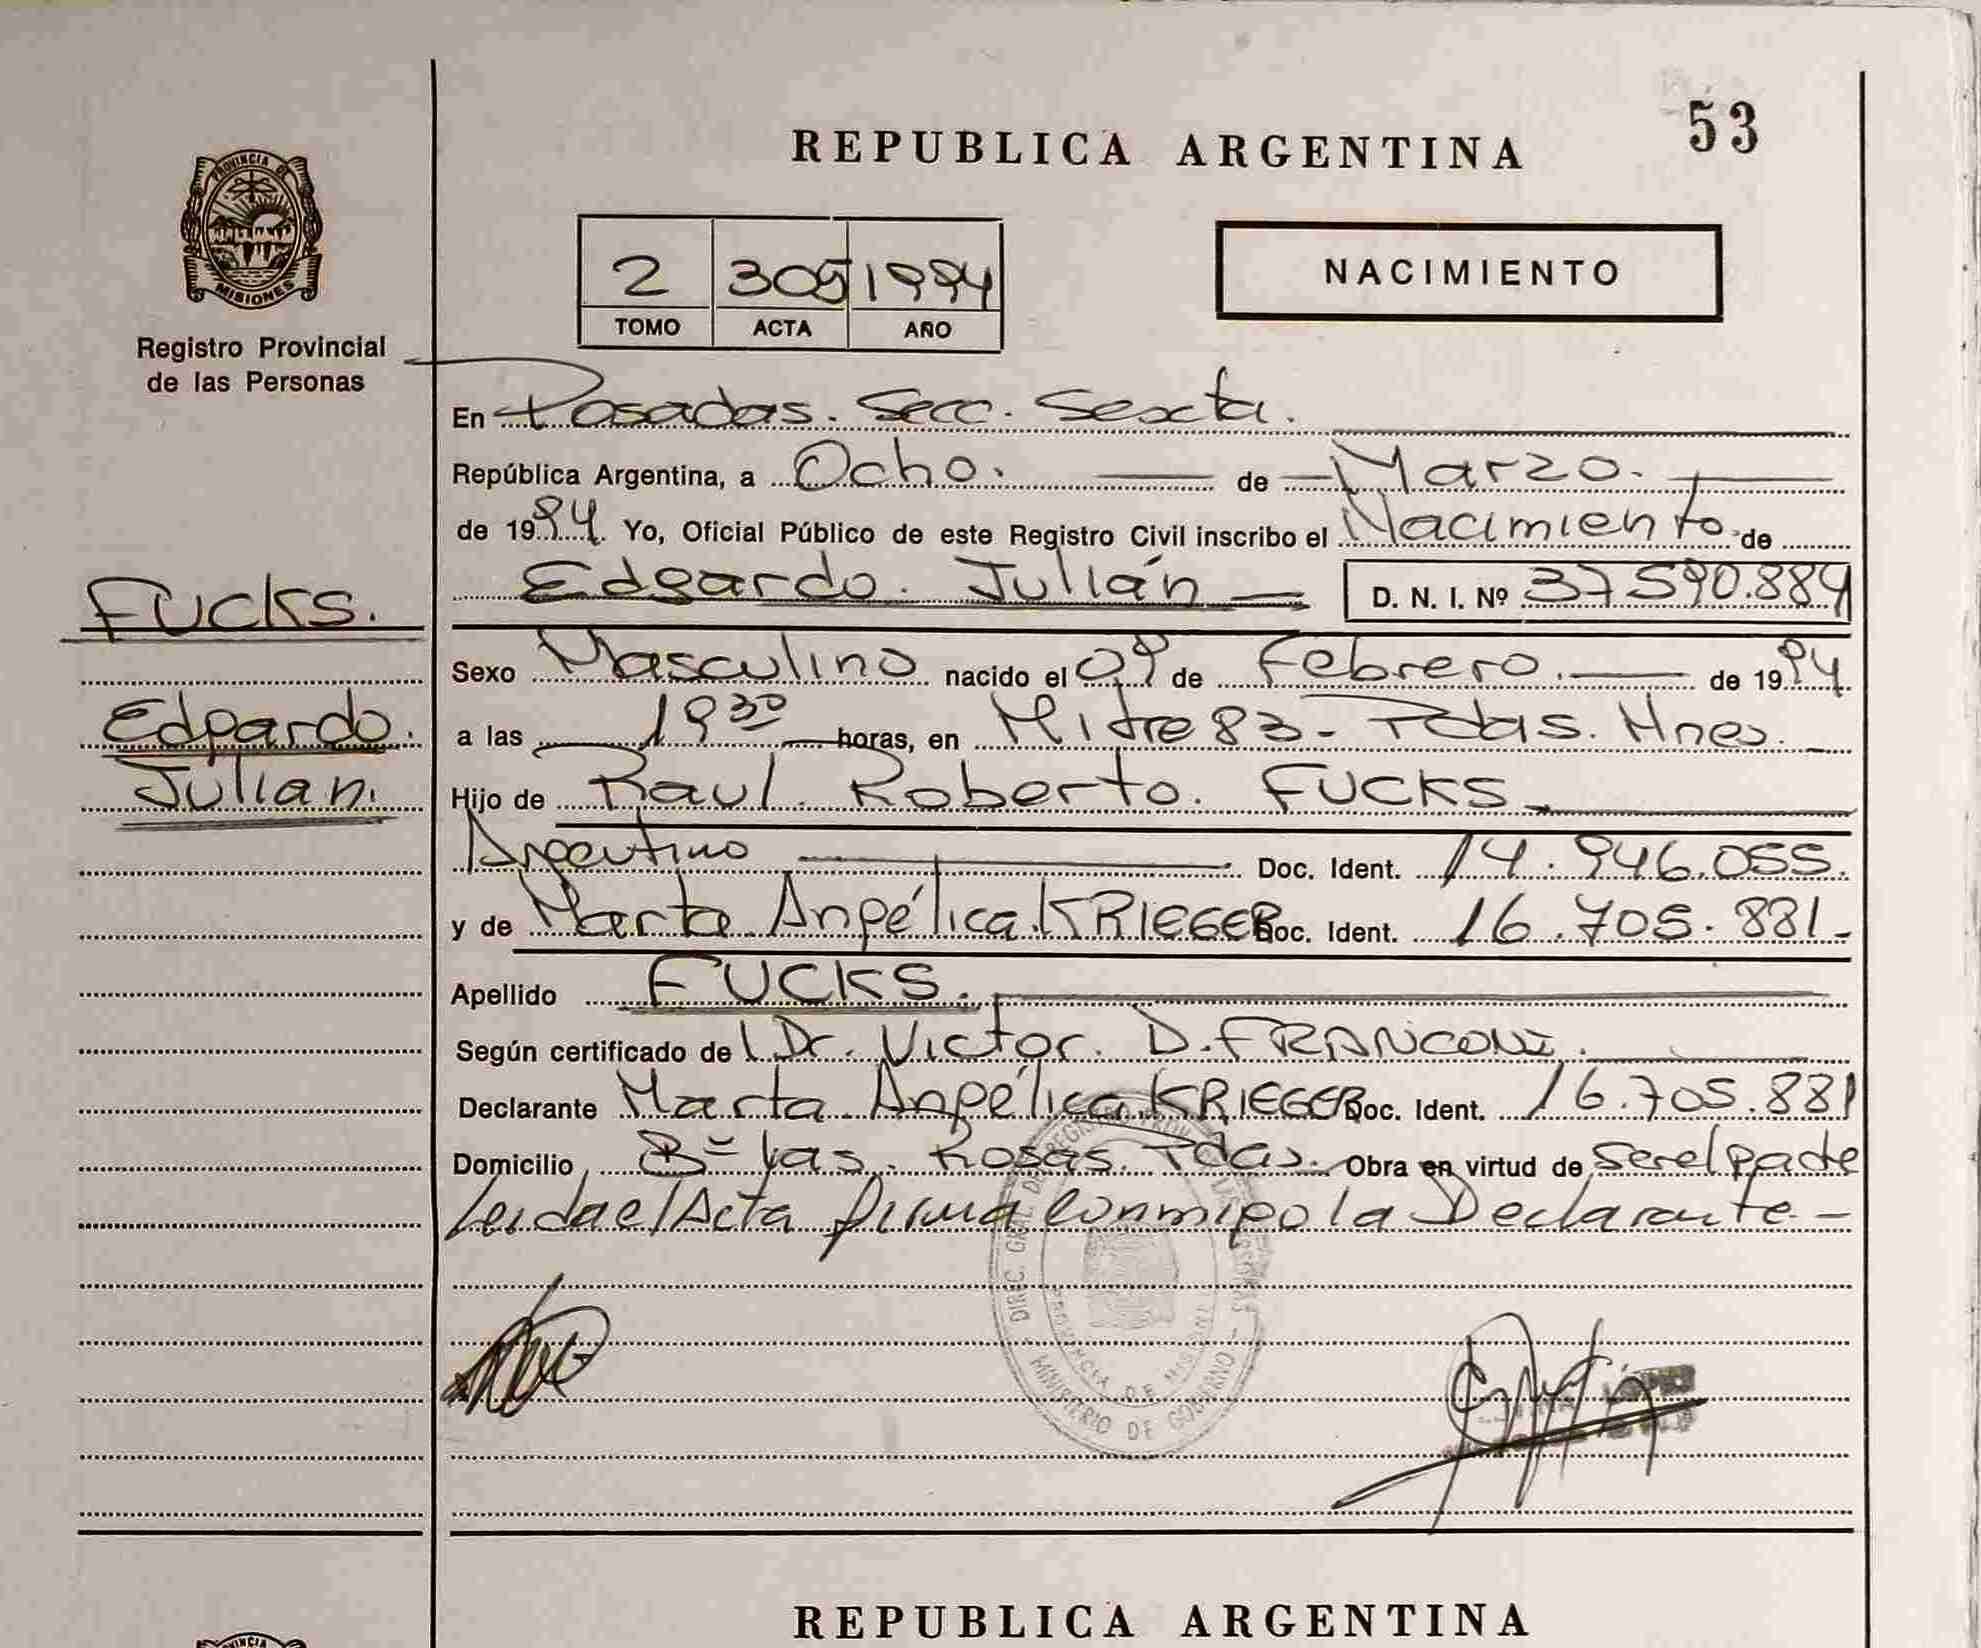 53
REPUBLICA ARGENTINA
PROVINCIA DE
MISIONES
Registro Provincial
de las Personas
2 305 1994
TOMO ACTA AÑO
NACIMIENTO
En Posadas. Secc. Sexta.
República Argentina, a Ocho. de Marzo.
de 1994. Yo, Oficial Público de este Registro Civil inscribo el Nacimiento de
Edgardo. Julián D. N. I. Nº 37.590.884
FUCKS.
Edgardo.
Julian.
Sexo Masculino nacido el 09 de Febrero. de 1994.
a las 19 30 horas, en Mitre 83 - Pdas. Mnes.
Hijo de Raul. Roberto. FUCKS
Argentino Doc. Ident. 14.946.055.
y de Marta Angélica. KRIEGER Doc. Ident. 16.705.881-
Apellido FUCKS.
Según certificado de Dr. Victor. D. FRANCONI.
Declarante Marta Angélica KRIEGER Doc. Ident. 16.705.881
Domicilio Bº las. Rosas. Pdas. Obra en virtud de ser el padre
Leida el Acta firma conmigo la Declarante -
MINISTERIO DE GOBIERNO
PROVINCIA DE MISIONES
LOPEZ
REPUBLICA ARGENTINA